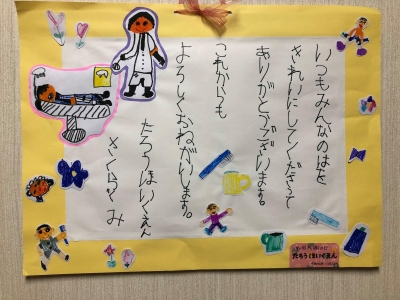 いつもみんなのはを
きれいにしてくださって
ありがとうございます。
これからも
よろしくおねがいします。
たろうほいくえん
さくらぐみ
たろうほいくえん